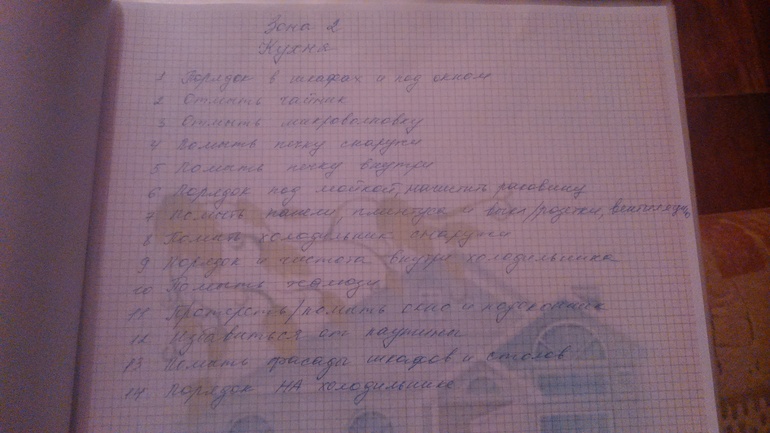 Зона 2
Кухня
1 Порядок в шкафах и под окном
2 Отмыть чайник
3 Отмыть микроволновку
4 Помыть печку снаружи
5 Помыть печку внутри
6 Порядок под мойкой, начистить раковину
7 Помыть панели, плинтура и выкл/розетки,
8 Помыть холодильник снаружи
9 Порядок и чистота внутри холодильника
10 Помыть жалюзи
11 Протереть/помыть окно и подоконник
12 Избавиться от паутины
13 Помыть фасада шкафов и столов
14 Порядок НА холодильнике